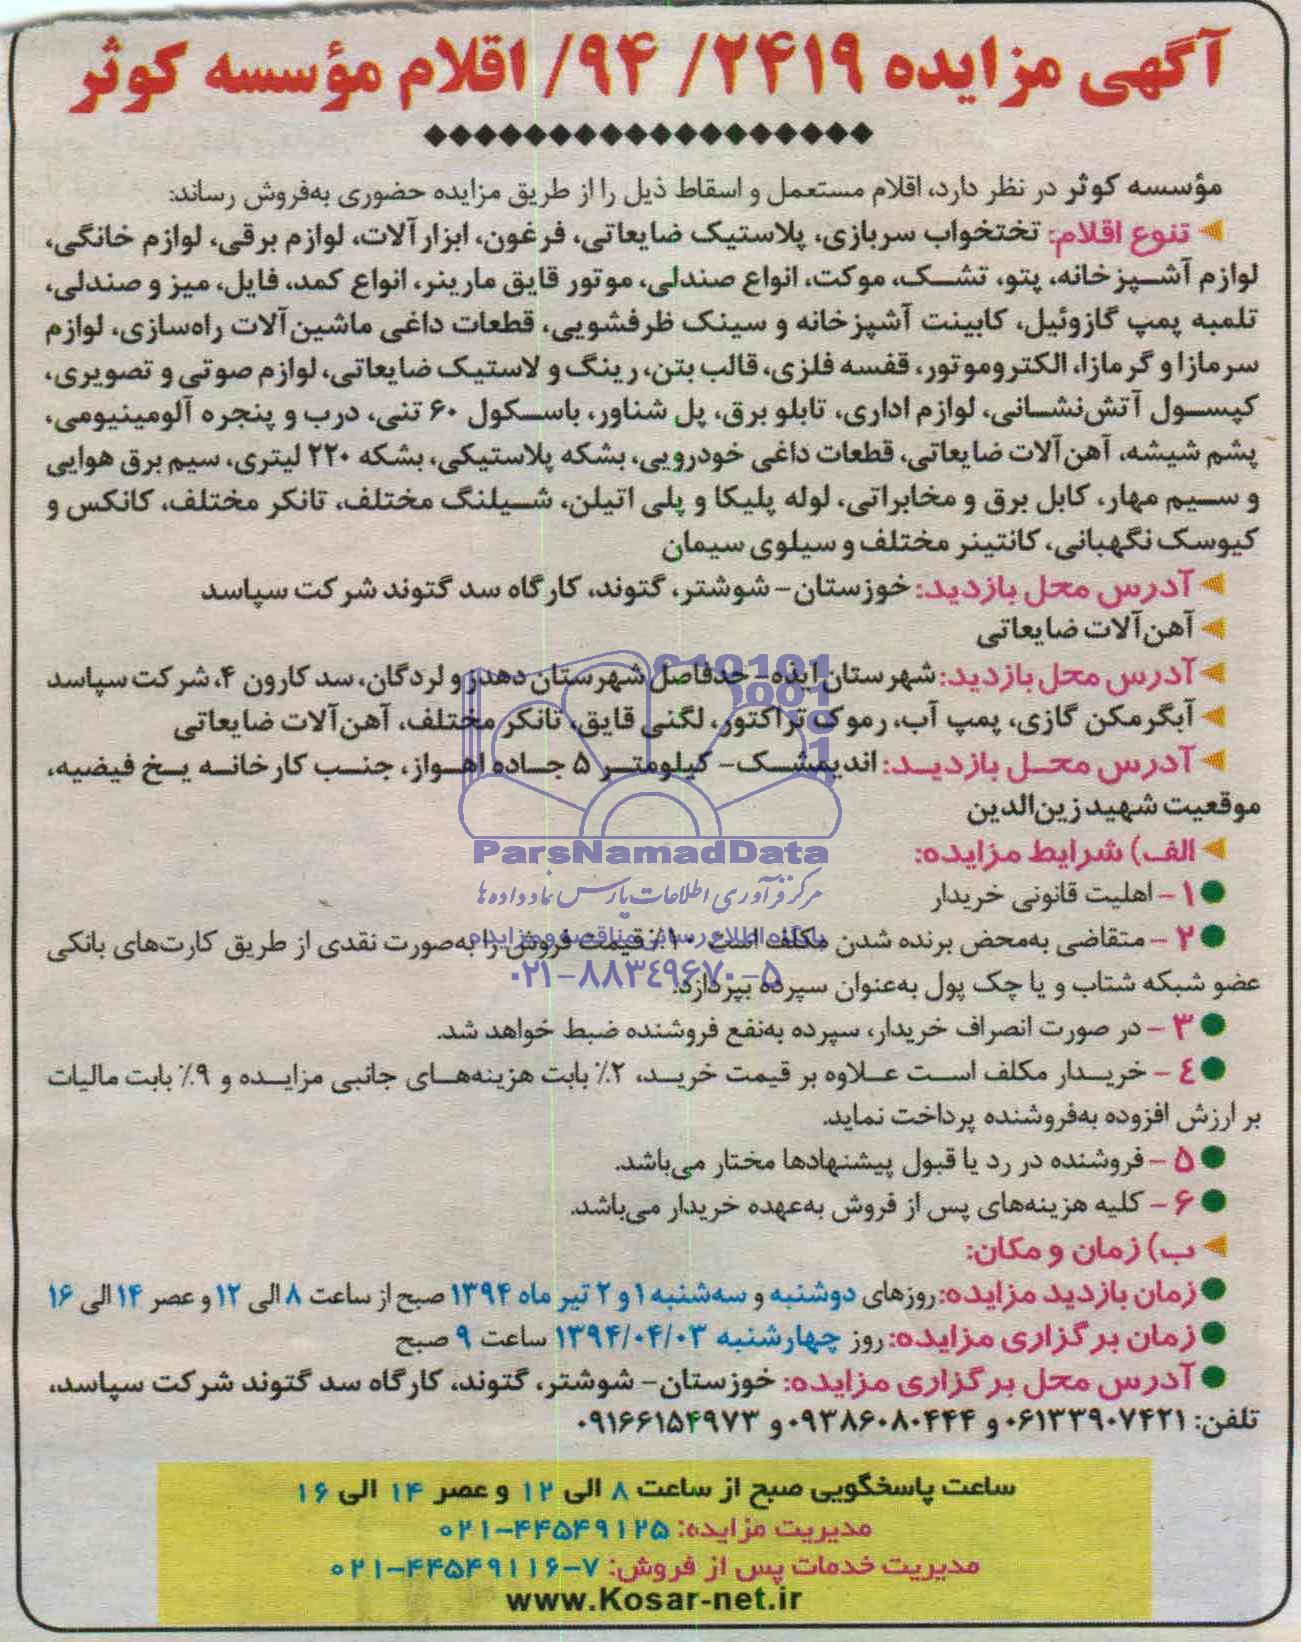 آگهی مزایده ۲۴۱۹/ ۹۴/ اقلام مؤسسه کوثر
مؤسسه کوثر در نظر دارد، اقلام مستعمل و اسقاط ذیل را از طریق مزایده حضوری به‌فروش رساند:
تنوع اقلام: تختخواب سربازی، پلاستیک ضایعاتی، فرغون، ابزارآلات، لوازم برقی، لوازم خانگی،
لوازم آشپزخانه، پتو، تشک، موکت، انواع صندلی، موتور قایق مارینر، انواع کمد، فایل، میز و صندلی،
تلمبه پمپ گازوئیل، کابینت آشپزخانه و سینک ظرفشویی، قطعات داغی ماشین‌آلات راه‌سازی، لوازم
سرمازا و گرمازا، الکتروموتور، قفسه فلزی، قالب بتن، رینگ و لاستیک ضایعاتی، لوازم صوتی و تصویری،
کپسول آتش‌نشانی، لوازم اداری، تابلو برق، پل شناور، باسکول ۶۰ تنی، درب و پنجره آلومینیومی،
پشم شیشه، آهن‌آلات ضایعاتی، قطعات داغی خودرویی، بشکه پلاستیکی، بشکه ۲۲۰ لیتری، سیم برق هوایی
و سیم مهار، کابل برق و مخابراتی، لوله پلیکا و پلی اتیلن، شیلنگ مختلف، تانکر مختلف، کانکس و
کیوسک نگهبانی، کانتینر مختلف و سیلوی سیمان
آدرس محل بازدید: خوزستان- شوشتر، گتوند، کارگاه سد گتوند شرکت سپاسد
آهن‌آلات ضایعاتی
آدرس محل بازدید: شهرستان ایذه- حدفاصل شهرستان دهدز و لردگان، سد کارون ۴، شرکت سپاسد
آبگرمکن گازی، پمپ آب، رموک تراکتور، لگنی قایق، تانکر مختلف، آهن‌آلات ضایعاتی
آدرس محل بازدید: اندیمشک- کیلومتر ۵ جاده اهواز، جنب کارخانه یخ فیضیه،
موقعیت شهید زین‌الدین
ParsNamadData
الف) شرایط مزایده:
مرکز فرآوری اطلاعات پارس نماد داده‌ها
۱- اهلیت قانونی خریدار
۲- متقاضی به‌محض برنده شدن مکلف است ۱۰٪ قیمت فروش را به‌صورت نقدی از طریق کارت‌های بانکی
پایگاه اطلاع رسانی مناقصه و مزایده
عضو شبکه شتاب و یا چک پول به‌عنوان سپرده بپردازد.
۰۲۱-۸۸۳۴۹۶۷۰-۵
۳- در صورت انصراف خریدار، سپرده به‌نفع فروشنده ضبط خواهد شد.
۴- خریدار مکلف است علاوه بر قیمت خرید، ۲٪ بابت هزینه‌های جانبی مزایده و ۹٪ بابت مالیات
بر ارزش افزوده به‌فروشنده پرداخت نماید.
۵- فروشنده در رد یا قبول پیشنهادها مختار می‌باشد.
۶- کلیه هزینه‌های پس از فروش به‌عهده خریدار می‌باشد.
ب) زمان و مکان:
زمان بازدید مزایده: روزهای دوشنبه و سه‌شنبه ۱ و ۲ تیر ماه ۱۳۹۴ صبح از ساعت ۸ الی ۱۲ و عصر ۱۴ الی ۱۶
زمان برگزاری مزایده: روز چهارشنبه ۱۳۹۴/۰۴/۰۳ ساعت ۹ صبح
آدرس محل برگزاری مزایده: خوزستان- شوشتر، گتوند، کارگاه سد گتوند شرکت سپاسد،
تلفن: ۰۶۱۳۳۹۰۷۴۲۱ و ۰۹۳۸۶۰۸۰۴۴۴ و ۰۹۱۶۶۱۵۴۹۷۳
ساعت پاسخگویی صبح از ساعت ۸ الی ۱۲ و عصر ۱۴ الی ۱۶
مدیریت مزایده: ۰۲۱-۴۴۵۴۹۱۲۵
مدیریت خدمات پس از فروش: ۷-۰۲۱-۴۴۵۴۹۱۱۶
www.Kosar-net.ir